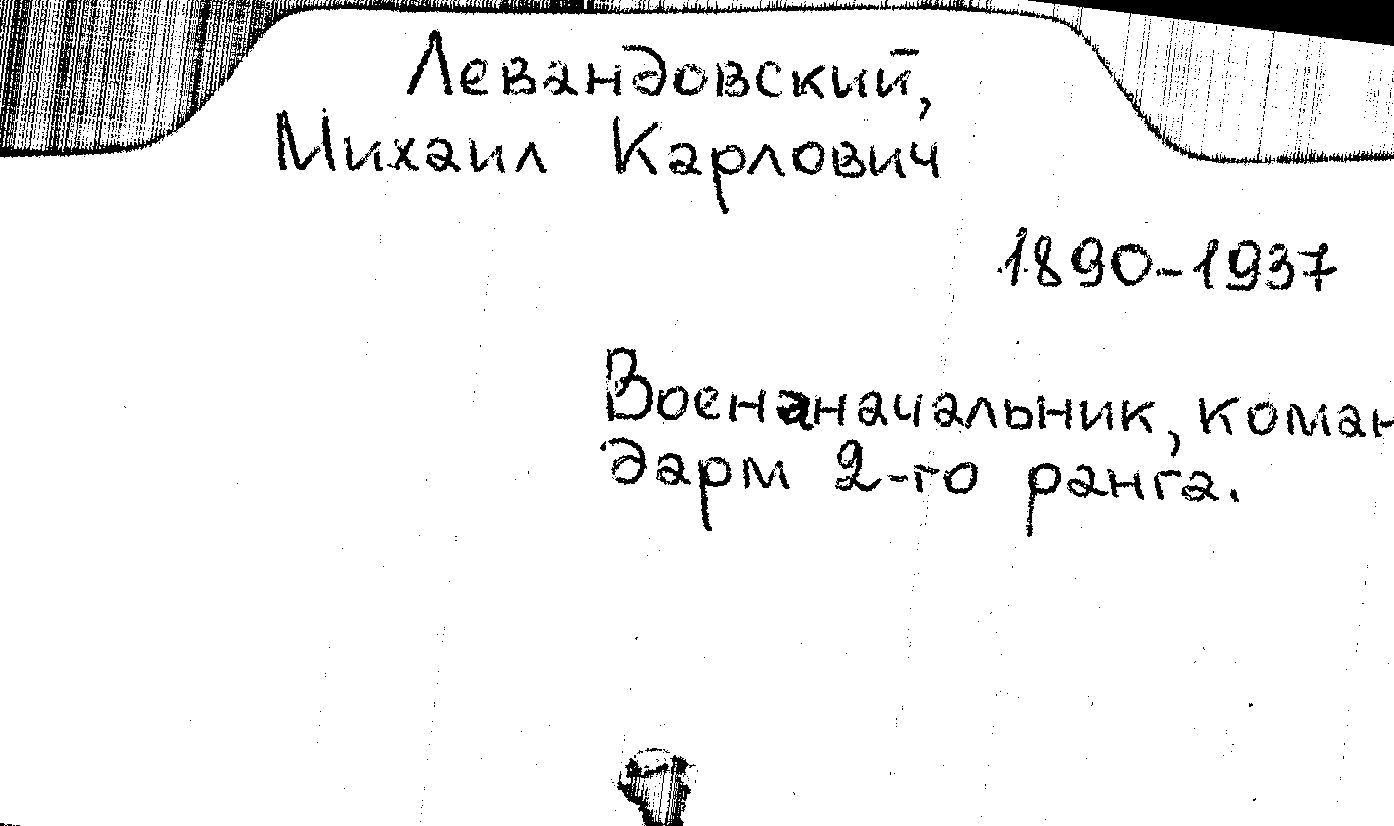 Левандовский,
Михаил Карлович
1890-1937
Военаначальник, коман
дарм 2-го ранга.